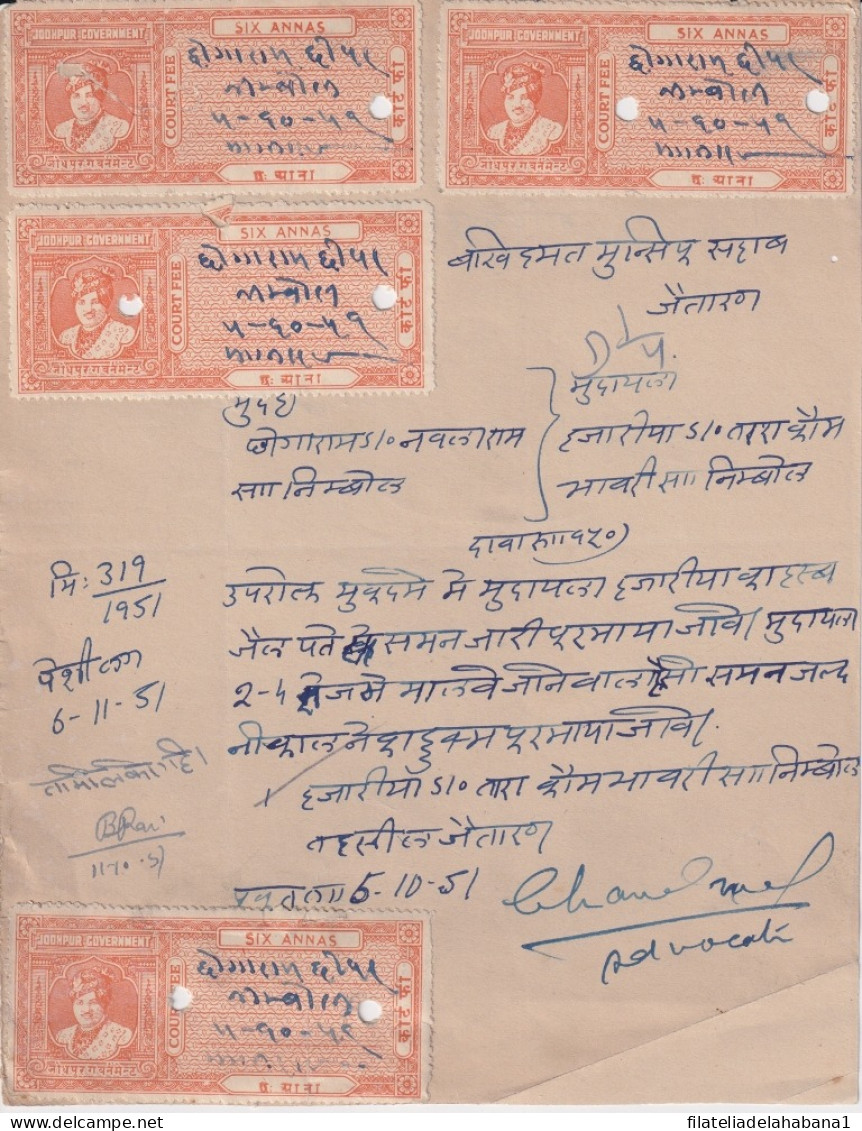 SIX ANNAS
JODHPUR GOVERNMENT
COURT FEE
कोर्ट फी
छोगाराम छीपा
५-१०-५१
जोधपुर गवर्नमेन्ट
छः आना
SIX ANNAS
JODHPUR GOVERNMENT
COURT FEE
कोर्ट फी
छोगाराम छीपा
५-१०-५१
जोधपुर गवर्नमेन्ट
छः आना
SIX ANNAS
JODHPUR GOVERNMENT
COURT FEE
कोर्ट फी
छोगाराम छीपा
५-१०-५१
जोधपुर गवर्नमेन्ट
छः आना
बखिदमत मुन्सिफ सहाब
जैतारण
मुदई
छोगाराम S/० नवलाराम
सा॥ निम्बोल
मुदायला
हजारीया S/० तारा कौम
भावरी सा॥ निम्बोल
मि: 319/1951
पेशी
6-11-51
उपरोक्त मुकदमे मे मुदायला हजारीया का हस्ब
जैल पते समन जारी फरमाया जावे। मुदायला
2-4 मालवे जाने वाला है सो समन जल्द
नीकालने का हुकम फरमाया जावे।
हजारीया S/० तारा कौम भावरी सा॥ निम्बोल
तहसील जैतारण
5-10-51
11-10-51
Advocate
SIX ANNAS
JODHPUR GOVERNMENT
COURT FEE
कोर्ट फी
छोगाराम छीपा
५-१०-५१
जोधपुर गवर्नमेन्ट
छः आना
filateliadelahabana1